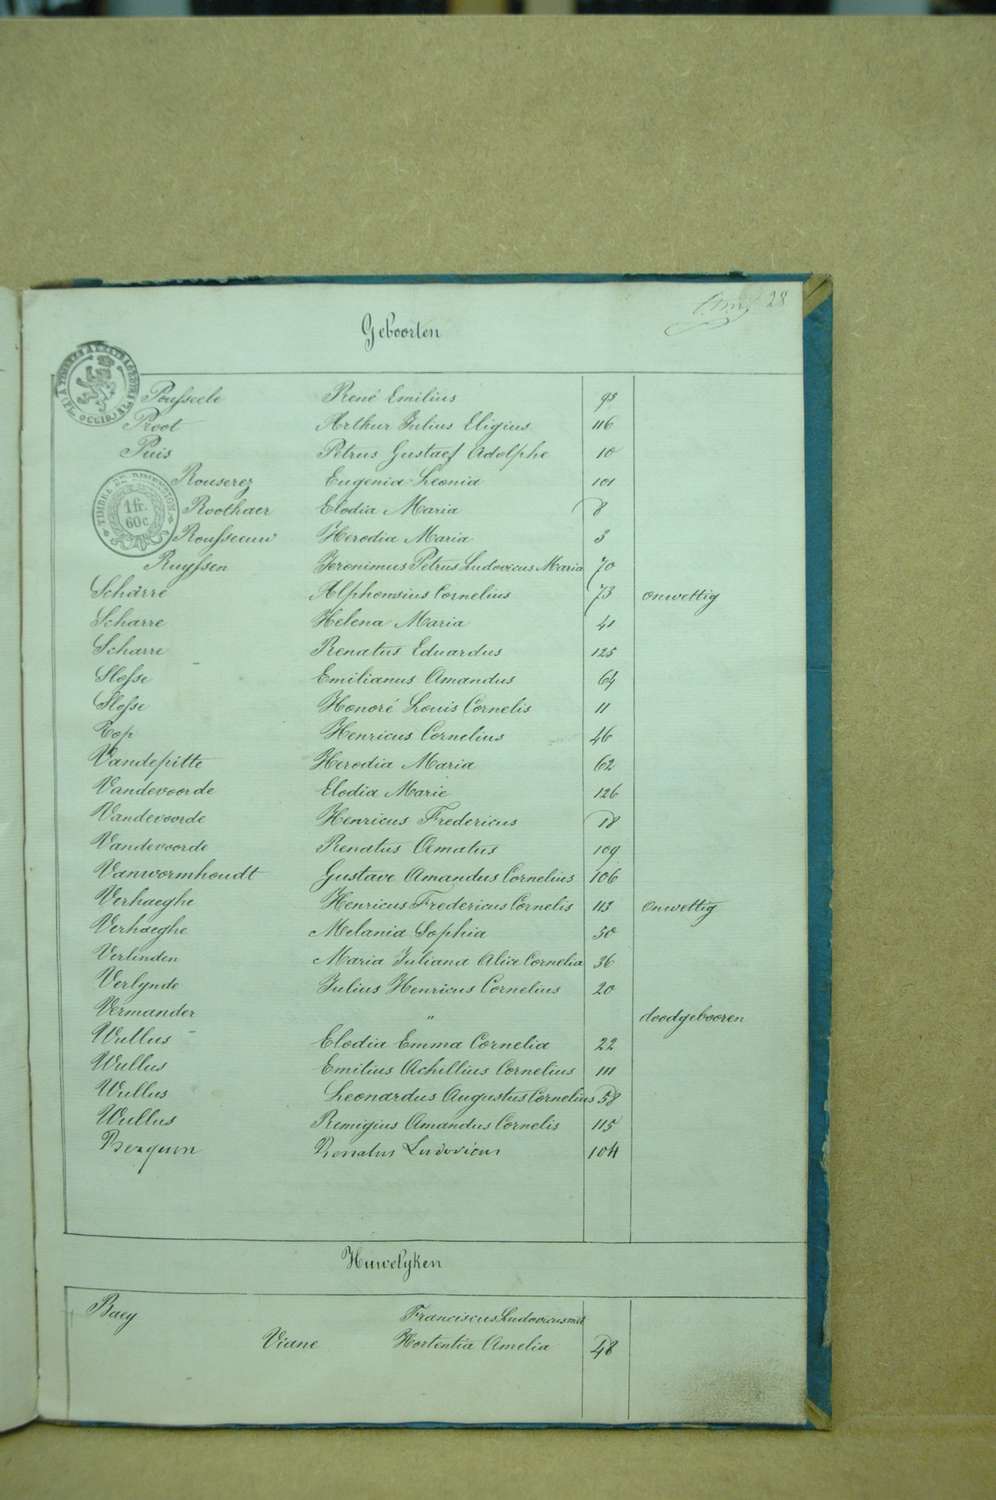 28
Geboorten
Pousseele René Emilius 98
Proot Arthur Julius Eligius 116
Puis Petrus Gustaef Adolphe 10
Rouserez Eugenia Leonia 101
Roothaer Elodia Maria 8
Rousseeuw Herodia Maria 3
Ruyssen Jeronimus Petrus Ludovicus Maria 70
Scharre Alphonsius Cornelius 73 onwettig
Scharre Helena Maria 41
Scharre Renatus Eduardus 125
Slosse Emilianus Amandus 64
Slosse Honoré Louis Cornelis 11
Top Henricus Cornelius 46
Vandepitte Herodia Maria 62
Vandevoorde Elodia Marie 126
Vandevoorde Henricus Fredericus 18
Vandevoorde Renatus Amatus 109
Vanwormhoudt Gustave Amandus Cornelius 106
Verhaeghe Henricus Fredericus Cornelis 113 onwettig
Verhaeghe Melania Sophia 50
Verlinden Maria Juliana Alice Cornelia 36
Verlynde Julius Henricus Cornelius 20
Vermander " doodgebooren
Wullus Elodia Emma Cornelia 22
Wullus Emilius Achillius Cornelius 111
Wullus Leonardus Augustus Cornelius 58
Wullus Remigius Amandus Cornelis 115
Renatus Ludovicus 104
1 fr.
60 c.
Huwelyken
Baey Franciscus Ludovicus
Viane Hortentia Amelia 48